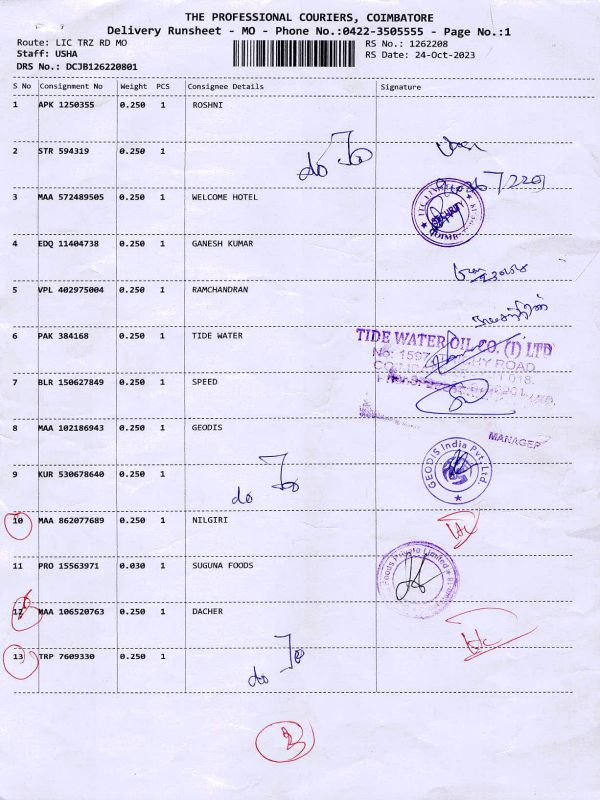 THE PROFESSIONAL COURIERS, COIMBATORE
Delivery Runsheet - MO - Phone No.:0422-3505555 - Page No.:1
Route: LIC TRZ RD MO
RS No.: 1262208
Staff: USHA
RS Date: 24-Oct-2023
DRS No.: DCJB126220801
S No Consignment No Weight PCS Consignee Details Signature
1 APK 1250355 0.250 1 ROSHNI
2 STR 594319 0.250 1
3 MAA 572489505 0.250 1 WELCOME HOTEL
SECURITY
4 EDQ 11404738 0.250 1 GANESH KUMAR
5 VPL 402975004 0.250 1 RAMCHANDRAN
6 PAK 384168 0.250 1 TIDE WATER
TIDE WATER OIL CO. (I) LTD
7 BLR 150627849 0.250 1 SPEED
8 MAA 102186943 0.250 1 GEODIS
MANAGER
GEODIS India Pvt. Ltd.
9 KUR 530678640 0.250 1
10 MAA 862077689 0.250 1 NILGIRI
11 PRO 15563971 0.030 1 SUGUNA FOODS
Foods Private Limited
12 MAA 106520763 0.250 1 DACHER
13 TRP 7609330 0.250 1
3